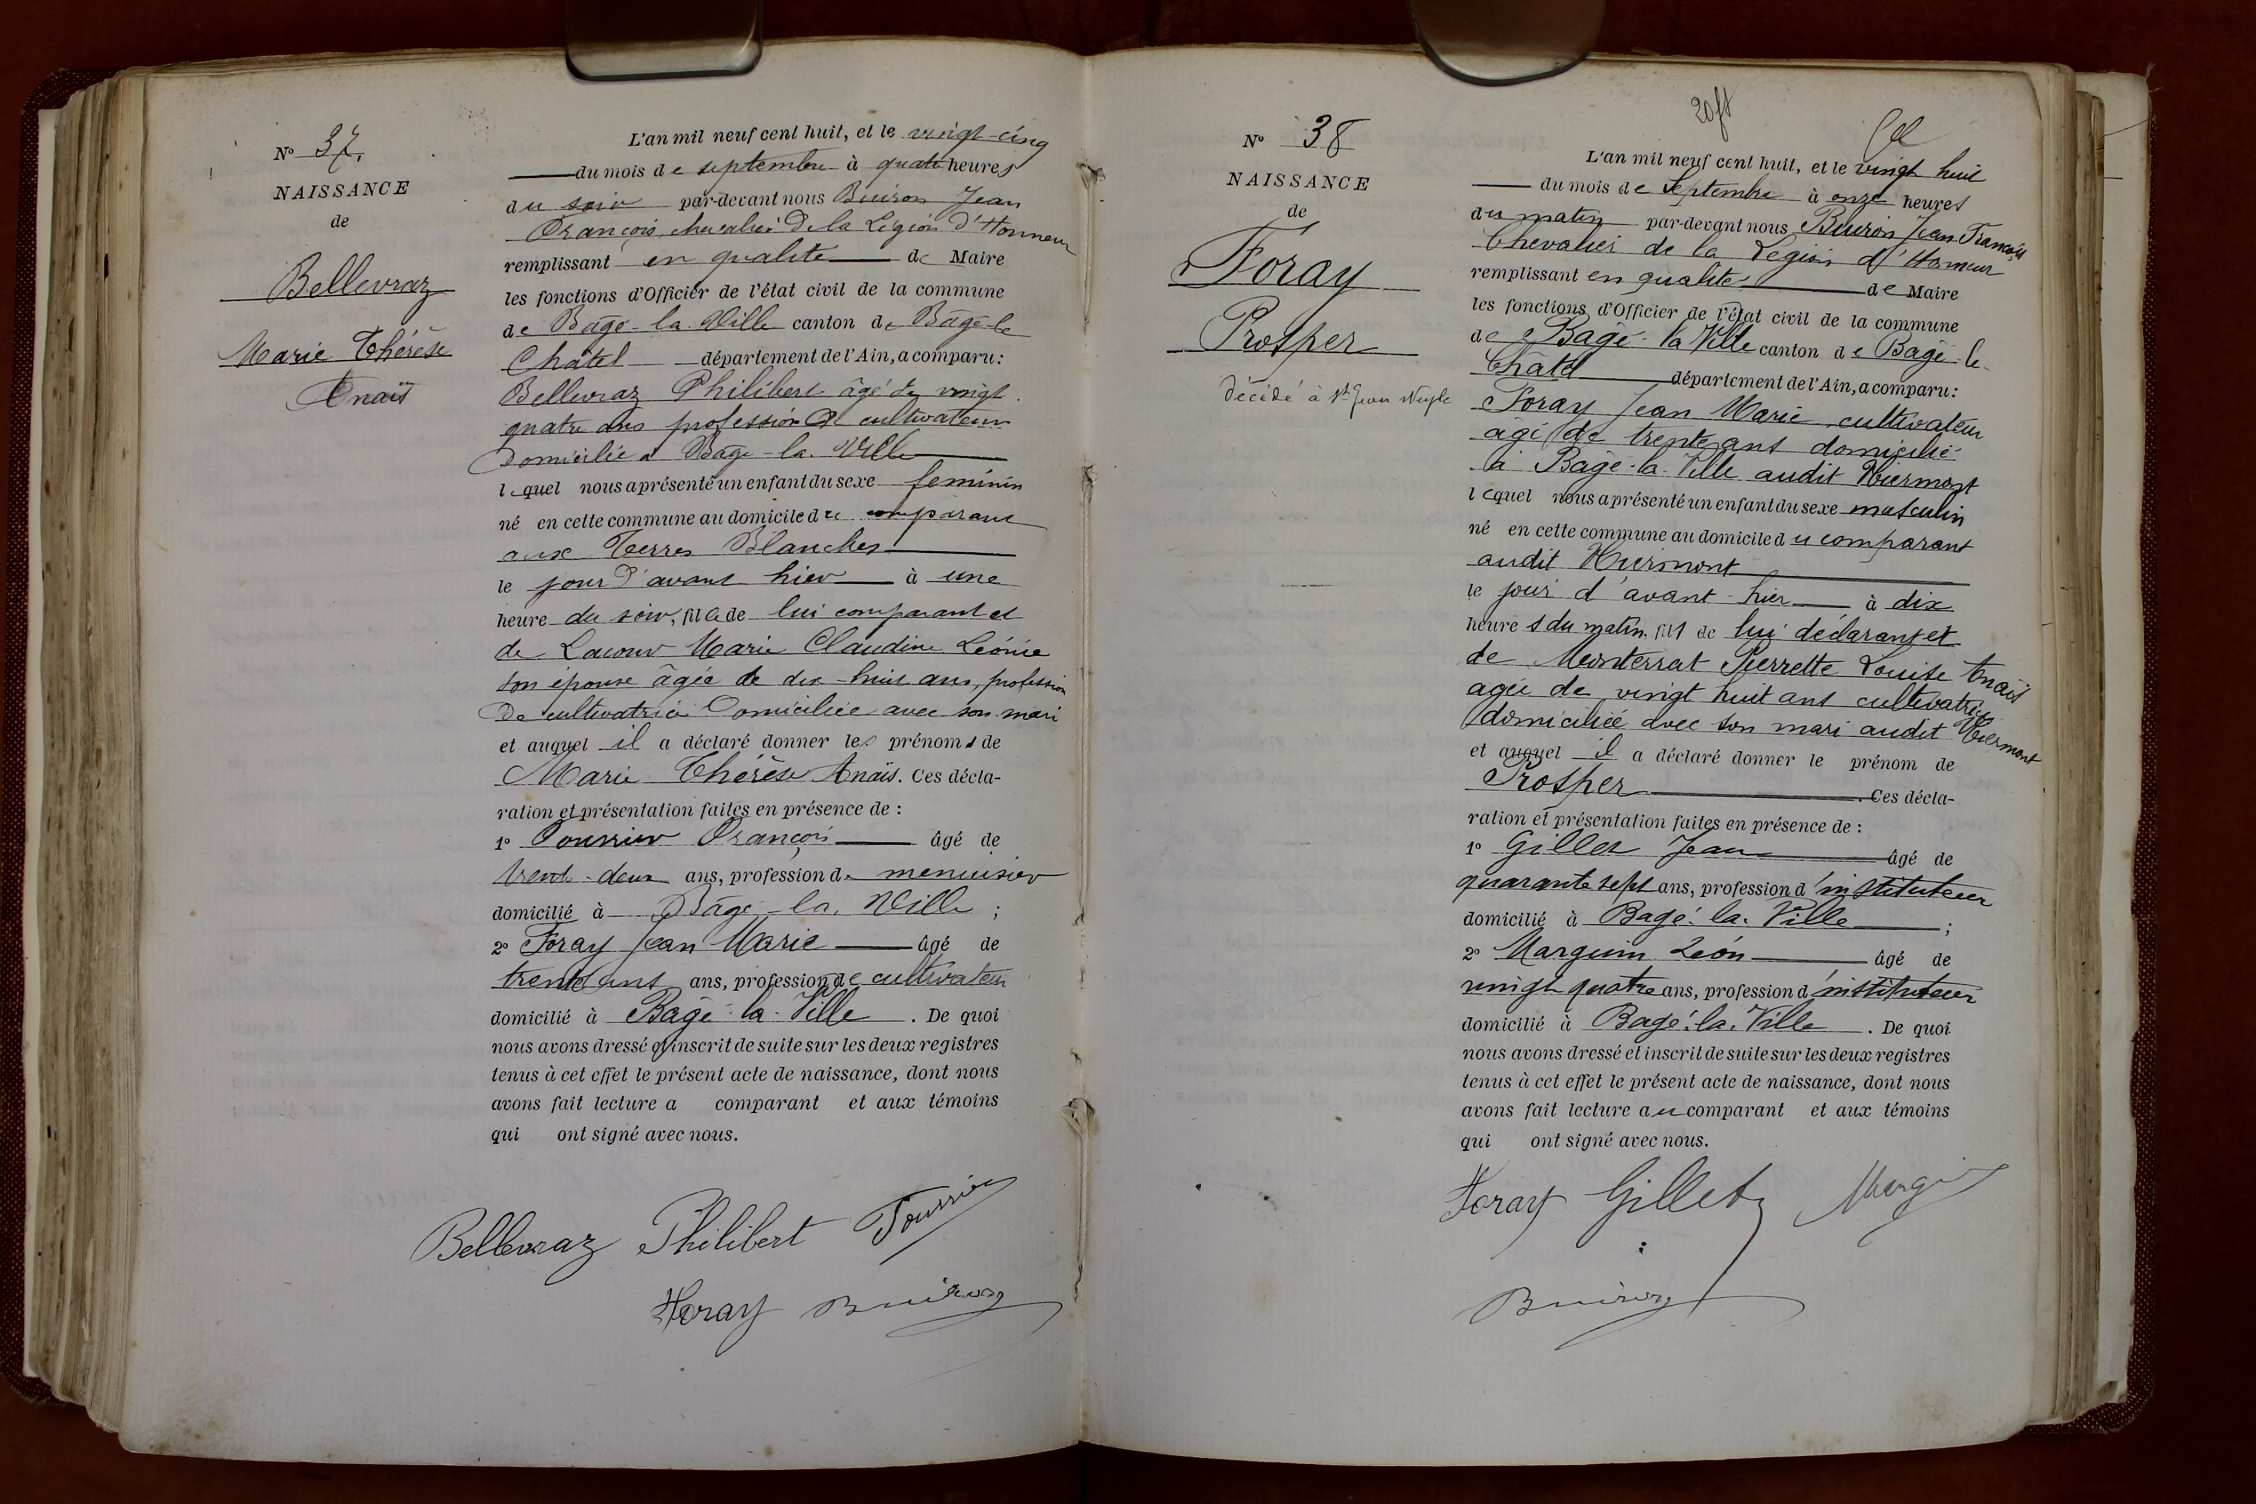 N° 37.
NAISSANCE
de
Bellevraz
Marie Thérèse
Anaïs
L'an mil neuf cent huit, et le vingt-cinq
du mois de septembre à quatre heures
du soir par-devant nous Buiron Jean
François, chevalier De la Légion d'Honneur
remplissant en qualité de Maire
les fonctions d'Officier de l'état civil de la commune
de Bâgé-la-Ville canton de Bâgé-le
Châtel département de l'Ain, a comparu:
Bellevraz Philibert âgé de vingt
quatre ans profession de cultivateur
Domicilié à Bâgé-la-Ville
lequel nous a présenté un enfant du sexe feminin
né en cette commune au domicile du comparant
aux Terres Blanches
le jour d'avant hier à une
heure du soir, fille de lui comparant et
de Lacour Marie Claudine Léonie
son épouse âgée de dix-huit ans, profession
De cultivatrice Domiciliée avec son mari
et auquel il a déclaré donner les prénoms de
Marie Thérèse Anaïs. Ces décla-
ration et présentation faites en présence de :
1° François âgé de
trent-deux ans, profession de menuisier
domicilié à Bâgé-la-Ville ;
2° Foray Jean Marie âgé de
trente ans ans, profession de cultivateur
domicilié à Bâgé-la-Ville . De quoi
nous avons dressé et inscrit de suite sur les deux registres
tenus à cet effet le présent acte de naissance, dont nous
avons fait lecture a comparant et aux témoins
qui ont signé avec nous.
Bellevraz Philibert
Foray Buiron
20ft
N° 38
NAISSANCE
de
Foray
Prosper
Décédé à St Jean s/Veyle
L'an mil neuf cent huit, et le vingt huit
du mois de Septembre à onze heures
du matin par-devant nous Buiron Jean François
Chevalier de la Légion d'Honneur
remplissant en qualité de Maire
les fonctions d'Officier de l'état civil de la commune
de Bâgé-la-Ville canton de Bâgé-le-
Châtel département de l'Ain, a comparu:
Foray Jean Marie, cultivateur
âgé de trente ans domicilié
à Bâgé-la-Ville audit
lequel nous a présenté un enfant du sexe masculin
né en cette commune au domicile du comparant
audit
le jour d'avant-hier à dix
heures du matin, fils de lui déclarant et
de Monterrat Pierrette Louise Anaïs
agée de vingt huit ans cultivatrice
domiciliée avec son mari audit
et auquel il a déclaré donner le prénom de
Prosper . Ces décla-
ration et présentation faites en présence de :
1° Gillet Jean âgé de
quarante sept ans, profession d'instituteur
domicilié à Bagé-la-Ville ;
2° Marguin Léon âgé de
vingt quatre ans, profession d'instituteur
domicilié à Bagé-la-Ville . De quoi
nous avons dressé et inscrit de suite sur les deux registres
tenus à cet effet le présent acte de naissance, dont nous
avons fait lecture au comparant et aux témoins
qui ont signé avec nous.
Foray Gillet
Buiron